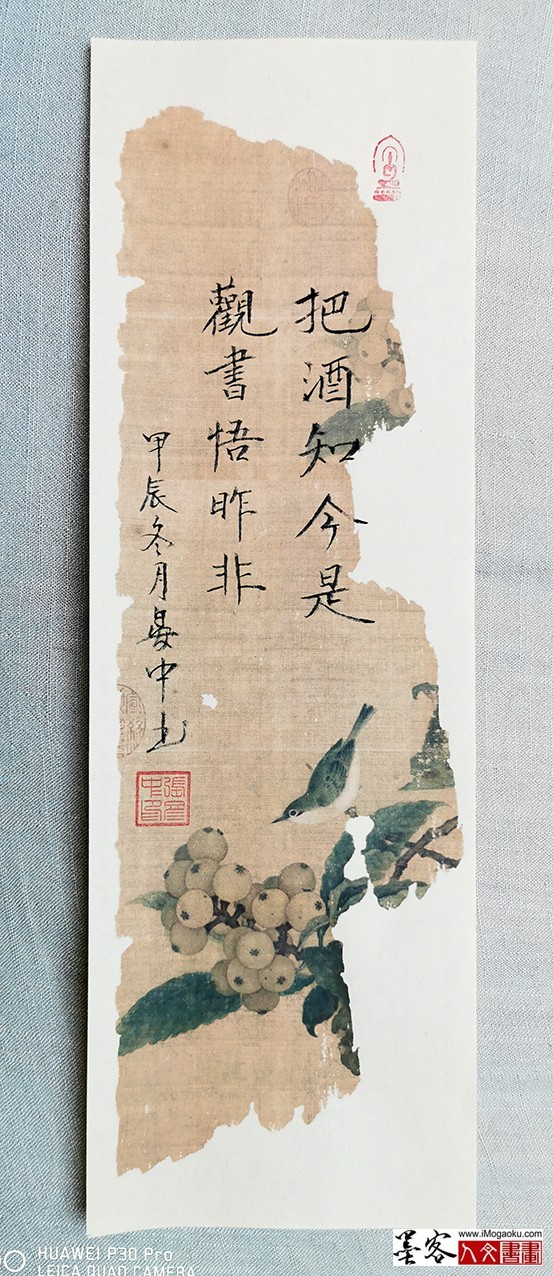 把酒知今是
觀書悟昨非
甲辰冬月晏中书
www.iMogaoku.com
墨客人文書畫
HUAWEI P30 Pro
LEICA QUAD CAMERA